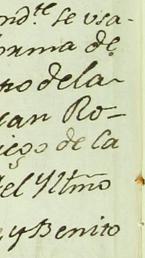 nd.te se usa-
orma de
to de la
uan Ro-
de la
del Yltmo
y Benito